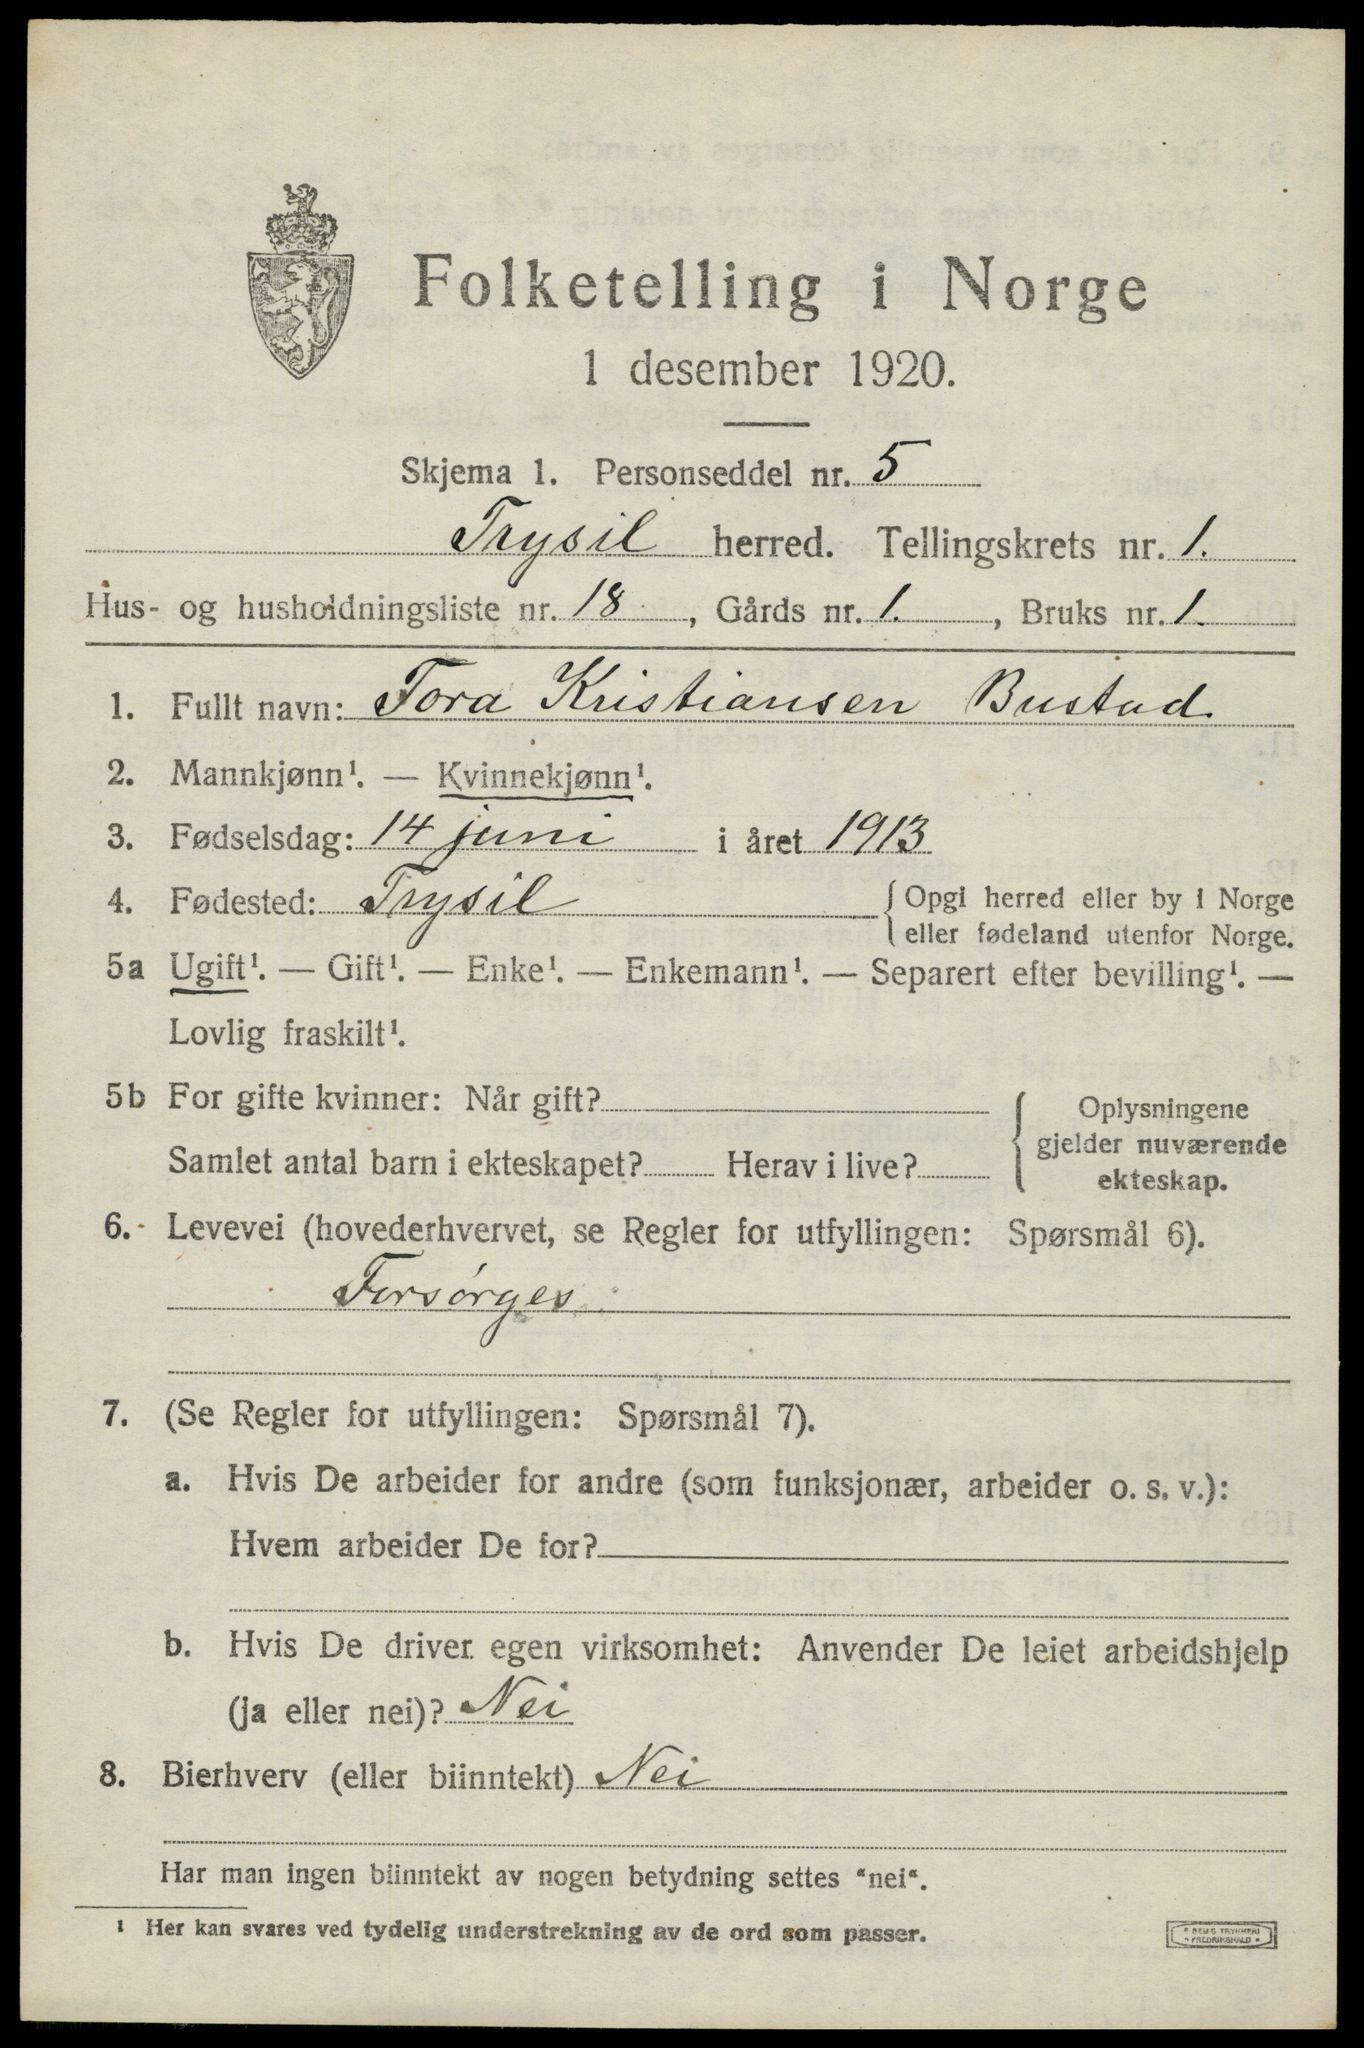 Folketelling i Norge
1 desember 1920.
Skjema 1. Personseddel nr. 5
Trysil herred. Tellingskrets nr. 1.
Hus- og husholdningsliste nr. 18, Gårds nr. 1., Bruks nr. 1.
1. Fullt navn: Tora Kristiansen Bustad
2. Mannkjønn¹. — Kvinnekjønn¹.
3. Fødselsdag: 14 juni i året 1913
4. Fødested: Trysil { Opgi herred eller by i Norge
eller fødeland utenfor Norge.
5a Ugift¹. — Gift¹. — Enke¹. — Enkemann¹. — Separert efter bevilling¹. —
Lovlig fraskilt¹.
5b For gifte kvinner: Når gift?
Samlet antal barn i ekteskapet? Herav i live?
{ Oplysningene
gjelder nuværende
ekteskap.
6. Levevei (hovederhvervet, se Regler for utfyllingen: Spørsmål 6).
Forsørges
7. (Se Regler for utfyllingen: Spørsmål 7).
a. Hvis De arbeider for andre (som funksjonær, arbeider o. s. v.):
Hvem arbeider De for?
b. Hvis De driver egen virksomhet: Anvender De leiet arbeidshjelp
(ja eller nei)? Nei
8. Bierhverv (eller biinntekt) Nei
Har man ingen biinntekt av nogen betydning settes "nei".
¹ Her kan svares ved tydelig understrekning av de ord som passer.